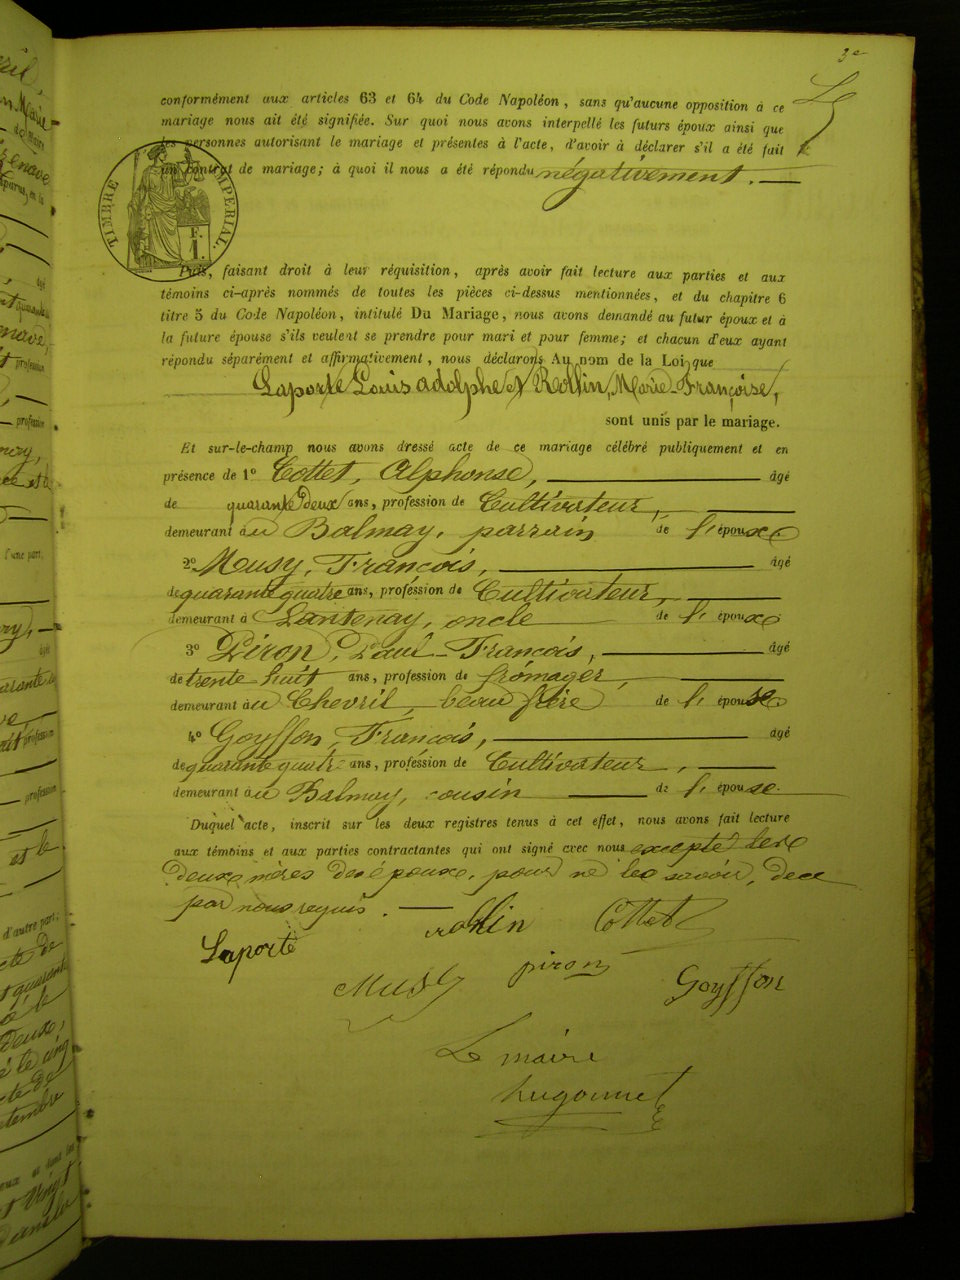 3e
conformément aux articles 63 et 64 du Code Napoléon, sans qu'aucune opposition à ce
mariage nous ait été signifiée. Sur quoi nous avons interpellé les futurs époux ainsi que
les personnes autorisant le mariage et présentes à l'acte, d'avoir à déclarer s'il a été fait
un contrat de mariage; à quoi il nous a été répondu négativement.
TIMBRE IMPERIAL.
F.
1.
Puis, faisant droit à leur réquisition, après avoir fait lecture aux parties et aux
témoins ci-après nommés de toutes les pièces ci-dessus mentionnées, et du chapitre 6
titre 5 du Code Napoléon, intitulé Du Mariage, nous avons demandé au futur époux et à
la future épouse s'ils veulent se prendre pour mari et pour femme; et chacun d'eux ayant
répondu séparément et affirmativement, nous déclarons Au nom de la Loi que
Laporte Louis adolphe et Rollin, Marie-Françoise,
sont unis par le mariage.
Et sur-le-champ nous avons dressé acte de ce mariage célébré publiquement et en
présence de 1o Cottet, Alphonse, âgé
de quarante deux ans, profession de Cultivateur,
demeurant au Balmay, parrain de l'époux
2o Musy, François, âgé
de quarante quatre ans, profession de Cultivateur,
demeurant à Lantenay, oncle de l'époux
3o Piron, Paul-François, âgé
de trente huit ans, profession de fromager,
demeurant au Chevril, beau frère de l'épouse
4o Goyffon, François, âgé
de quarante quatre ans, profession de Cultivateur,
demeurant au Balmay, cousin de l'épouse.
Duquel acte, inscrit sur les deux registres tenus à cet effet, nous avons fait lecture
aux témoins et aux parties contractantes qui ont signé avec nous excepté les
deux mères des époux, pour ne le savoir, de ce
par nous requis.
Laporte rollin Cottet
Musy piron Goyffon
Le maire
hugonnet